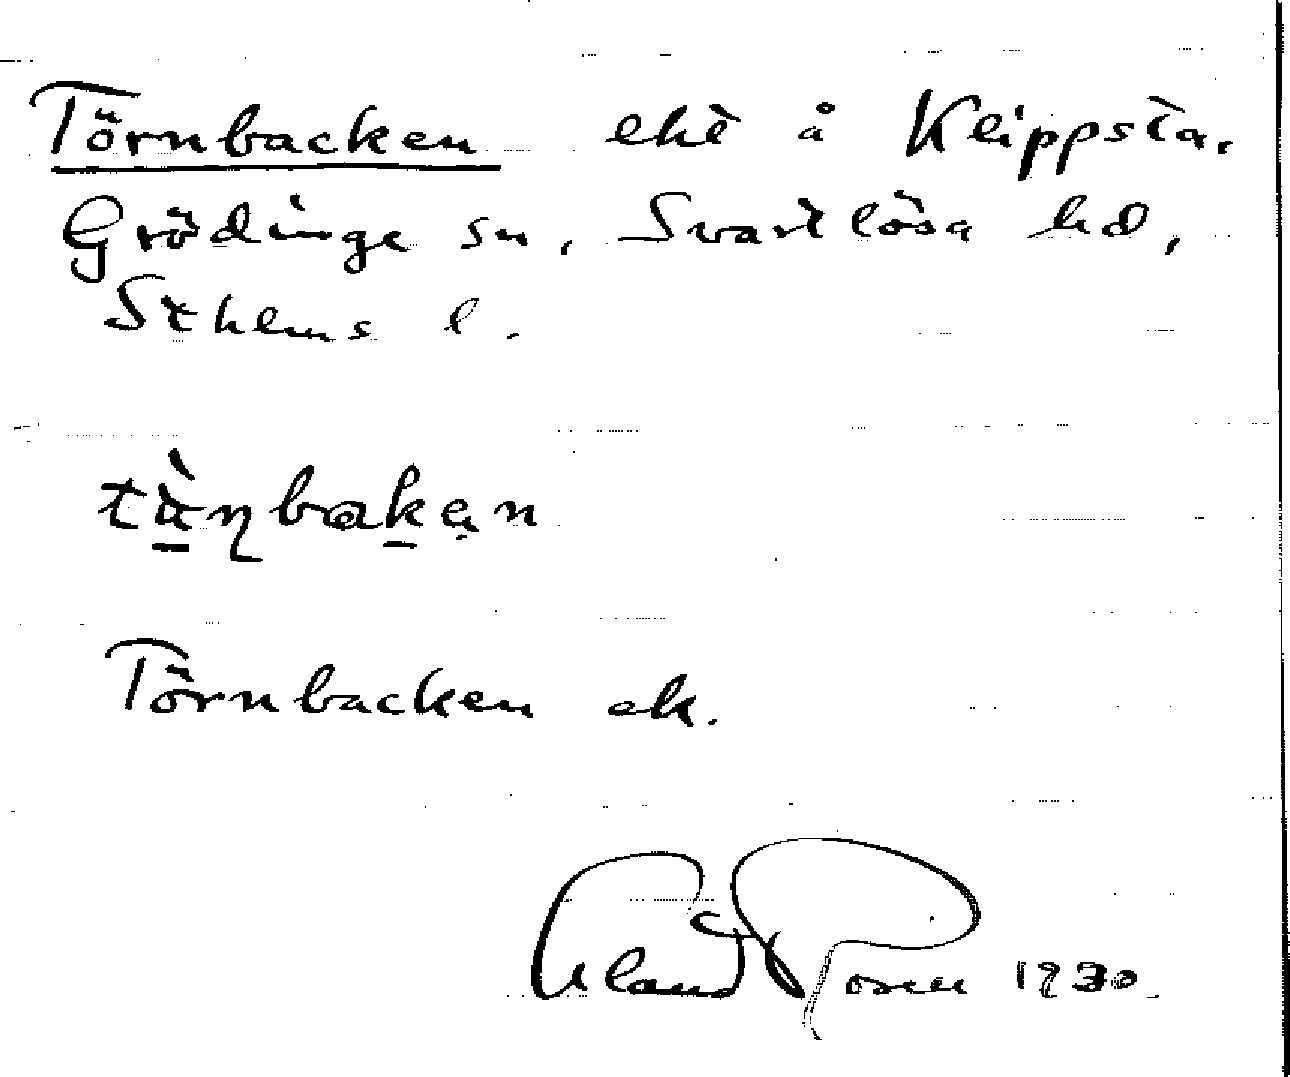 Törnbacken ekt å Kläppsta,
Grödinge sn, Svartlösa hd,
Sthlms l.
tὰɳbakən
Törnbacken ek.
Rosen 1930